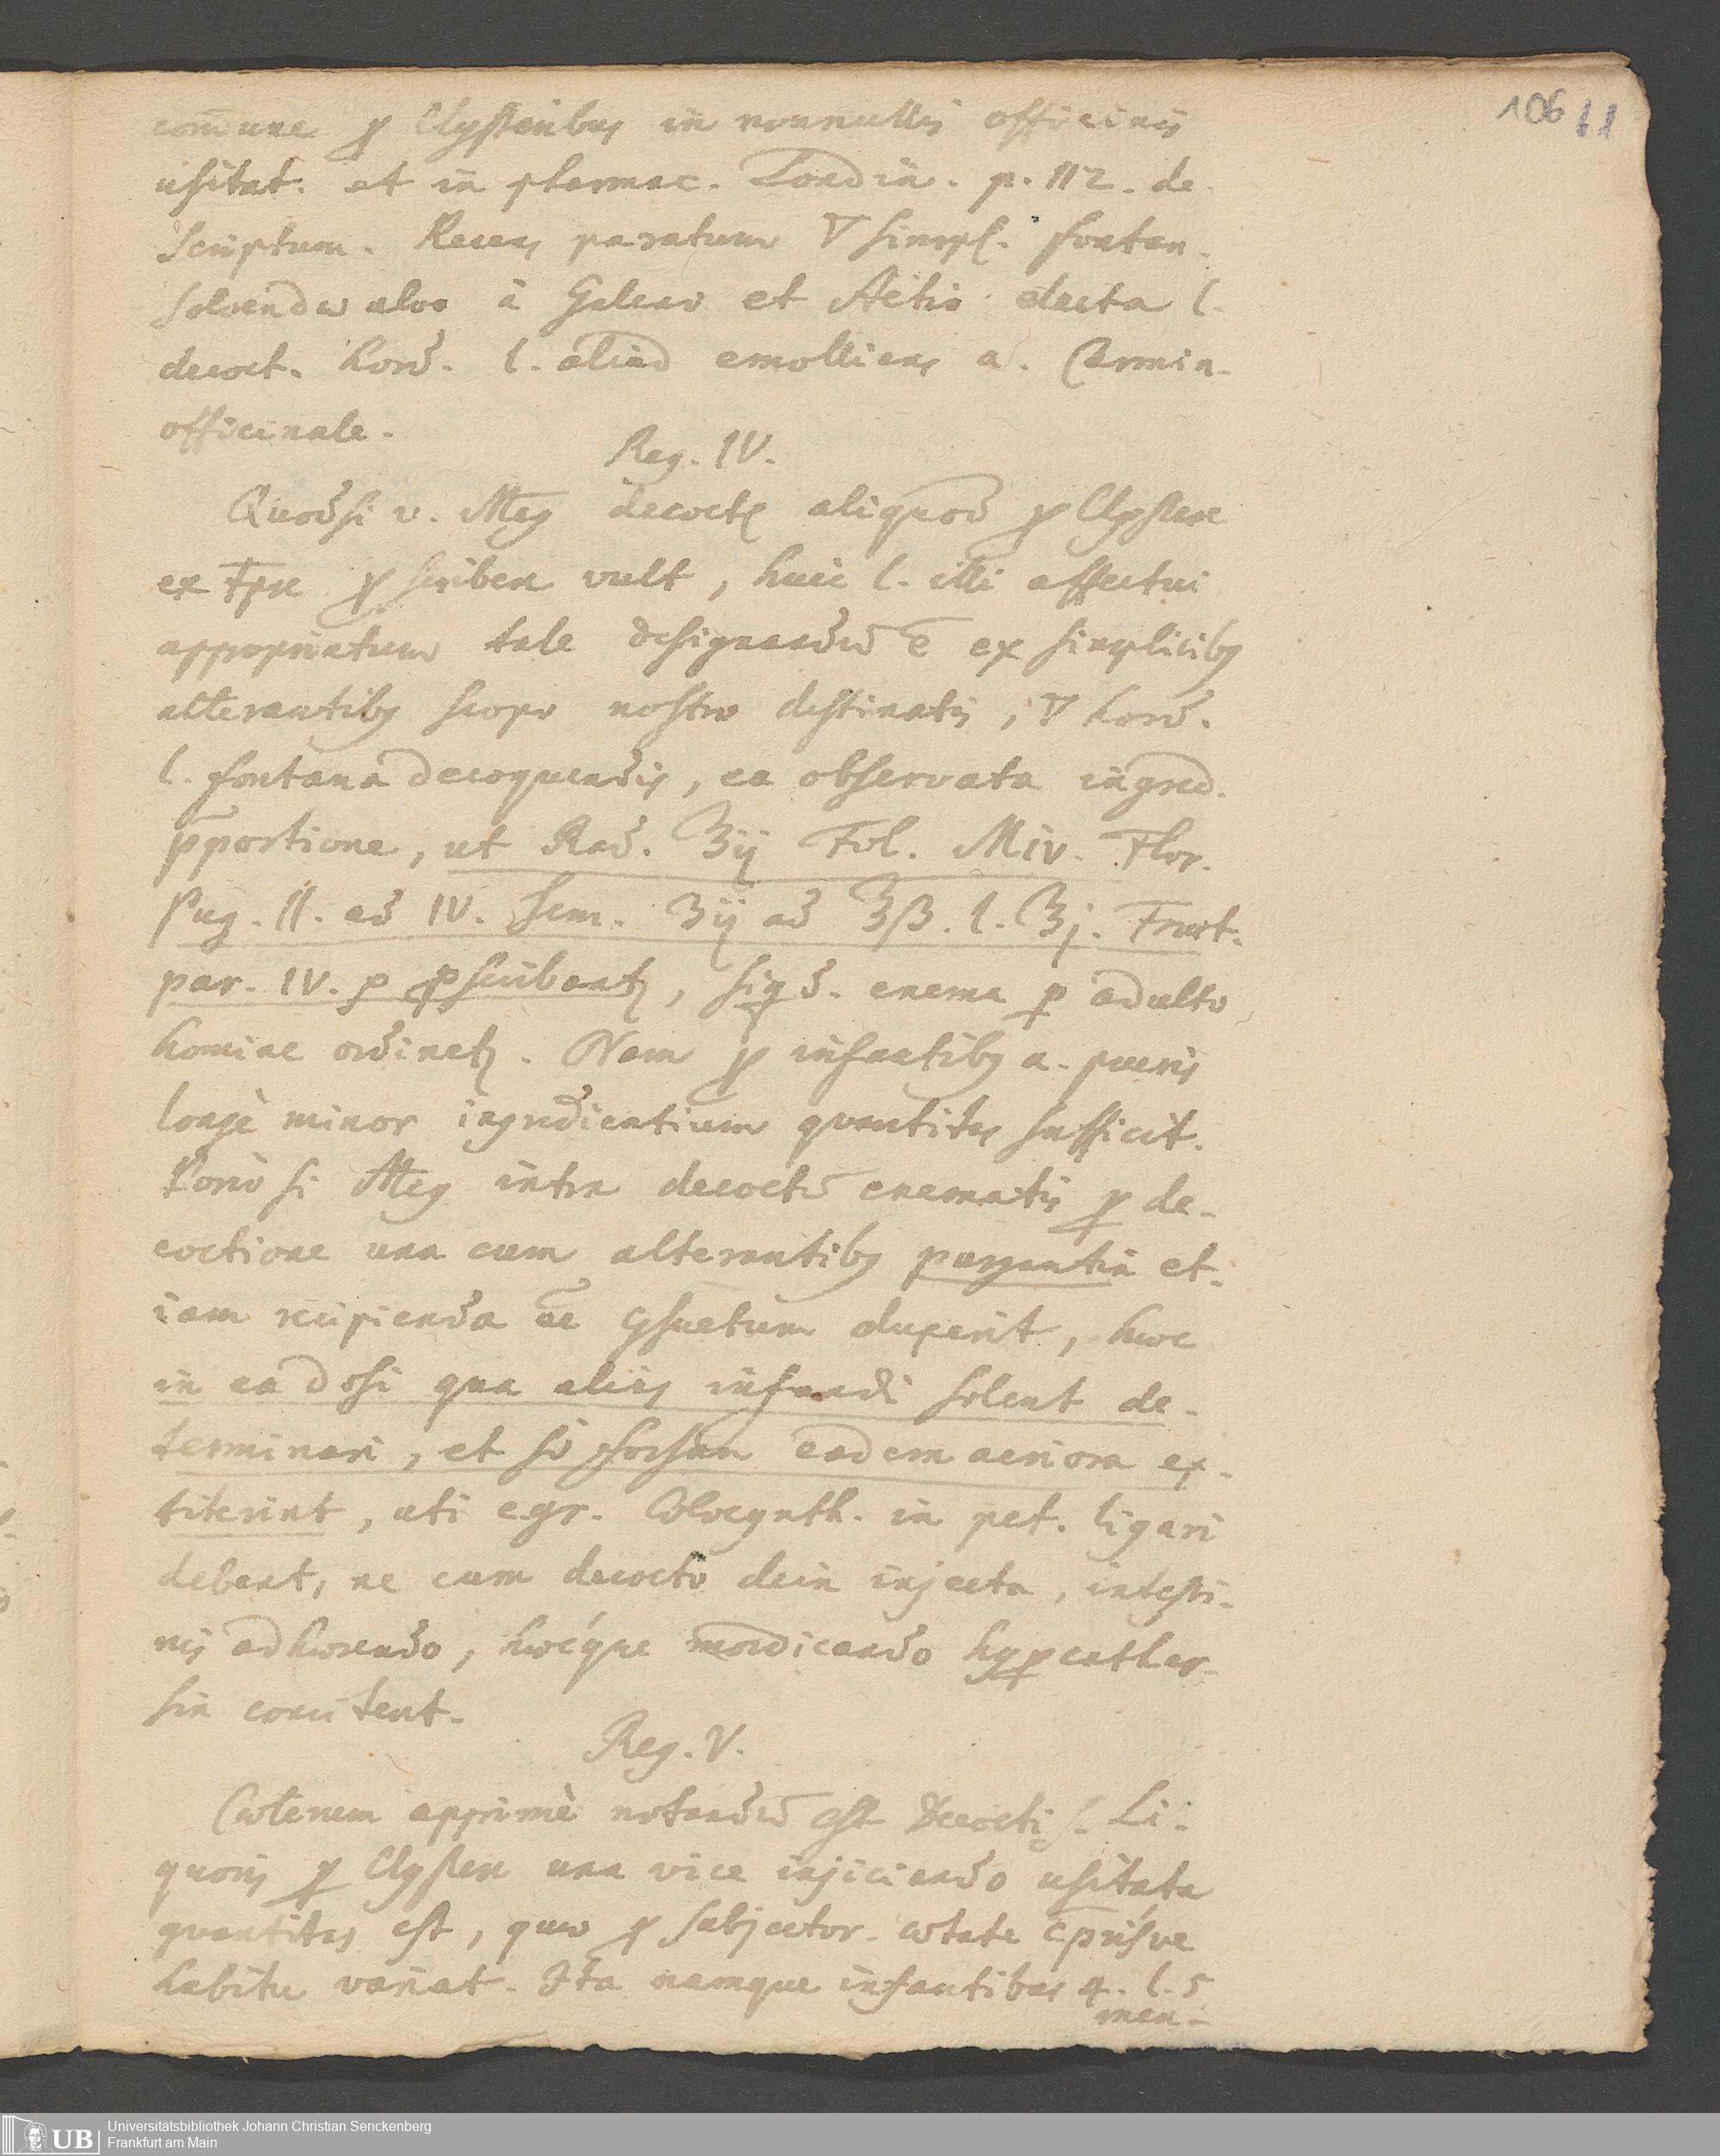 106 11
com̄une p Clysteribus in nonnullis officinis
usitat. et in pharmac. Londin. p. 112. de
scriptum. Recens paratum ▽ simpl. fontan.
solvendae alvo à Galeno et Aëtio electa l.
decoct. hord. l. aliud emolliens a. Carmin.
officinale.
Reg. IV.
Quodsi v. Meg decoctũ aliquod p Clystere
ex tpre pscribere vult, huic l. illi affectui
appropriatum tale designandũ ē ex simplicibg
alterantibg scopo nostro destinatis, ▽ hord.
l. fontana decoquendis, ea observata ingred.
p̄portione, ut Rad. ʒij Fol. M iv. Flor.
Pug. II. ad IV. Sem. ʒij ad ℥ß. l. ℥j. Fruct.
par. IV. p pscribantʒ, siqd. enema p adulto
homine ordinetʒ. Nam p infantibg a. pueris
longè minor ingredientium quantitas sufficit.
Porrò si Meg intra decoctũ enematis p de-
coctione una cum alterantibg purgantia et-
iam recipienda ēe gsuetum duxerit, haec
in ea dosi qua aliàs infundi solent de-
terminari, et si forsan eadem acriora ex-
titerint, uti e.gr. Colocynth. in pet. ligari
debent, ne cum decocto dein injecta, intesti-
nis adhaerendo, haecque mordicando hypcathar-
sin concitent.
Reg. V.
Caeterum apprimè notandũ est Decocti s. Li-
quoris p Clystere una vice injiciendo usitata
quantitas est, quae p subjector. aetate cp̄risve
habitu variat. Ita namque infantibus 4. l. 5
men-
Universitätsbibliothek Johann Christian Senckenberg
Frankfurt am Main
UB